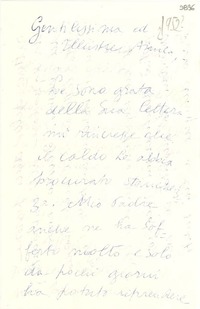 3636
1952
Gentilissima ed
Illustre Amica,
Le sono grata
della Sua lettera
mi rincresce che
il caldo Le abbia
procurato stanchez-
za. Mio Padre
anche ne ha sof-
ferto molto e solo
da pochi giorni
ha potuto riprendere